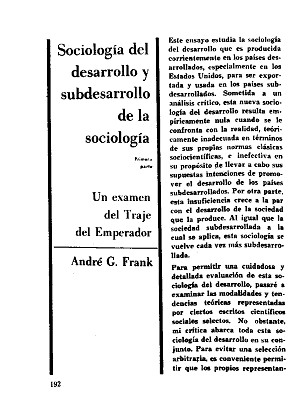 Sociología del
desarrollo y
subdesarrollo
de la
sociología
Primera
parte
Un examen
del Traje
del Emperador
André G. Frank
Este ensayo estudia la sociología
del desarrollo que es producida
corrientemente en los países des-
arrollados, especialmente en los
Estados Unidos, para ser expor-
tada y usada en los países sub-
desarrollados. Sometida a un
análisis crítico, esta nueva socio-
logía del desarrollo resulta em-
píricamente nula cuando se le
confronta con la realidad, teóri-
camente inadecuada en términos
de sus propias normas clásicas
sociocientíficas, e inefectiva en
su propósito de llevar a cabo sus
supuestas intenciones de promo-
ver el desarrollo de los países
subdesarrollados. Por otra parte,
esta insuficiencia crece a la par
con el desarrollo de la sociedad
que la produce. Al igual que la
sociedad subdesarrollada a la
cual se aplica, esta sociología se
vuelve cada vez más subdesarro-
llada.
Para permitir una cuidadosa y
detallada evaluación de esta so-
ciología del desarrollo, pasaré a
examinar las modalidades y ten-
dencias teóricas representadas
por ciertos escritos científicos
sociales selectos. No obstante,
mi crítica abarca toda esta so-
ciología del desarrollo en su con-
junto. Para evitar una selección
arbitraria, es conveniente permi-
tir que los propios representan-
192